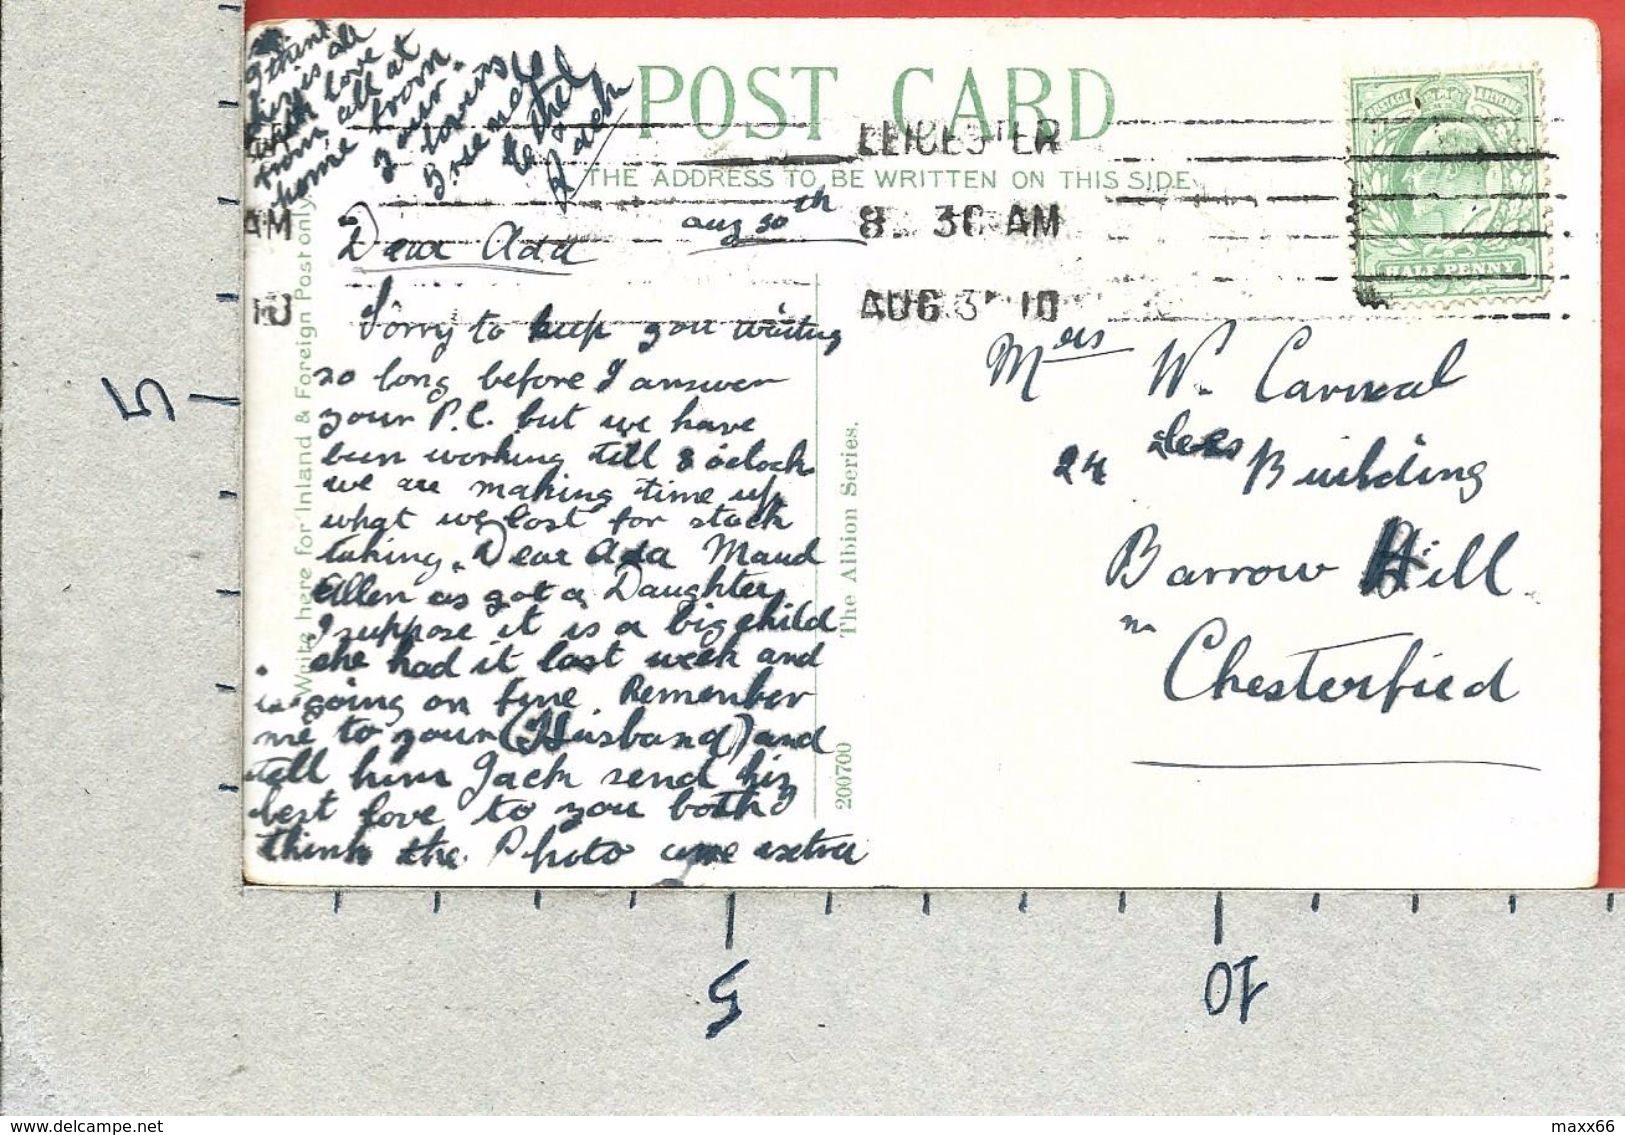 POST CARD
THE ADDRESS TO BE WRITTEN ON THIS SIDE
LEICESTER
8. 30 AM
AUG 31 10
AM
10
HALF PENNY
Write here for Inland & Foreign Post only.
The Albion Series.
200700
aug 30th
Dear Ada
Sorry to keep you waiting
so long before I answer
your P.C. but we have
been working till 8 oclock
we are making time up
what we lost for stock
taking. Dear Ada Maud
Allen as got a Daughter
I suppose it is a big child
she had it last week and
is going on fine. Remember
me to your (Husband) and
tell him Jack send his
best love to you both
think the Photo are extra
I think
this is all
with love
from all at
home from
your
loving
friends
Ethel
& Jack
Mrs W. Carnal
24 Lees Building
Barrow Hill
nr Chesterfied
5
5
10
www.delcampe.net
maxx66